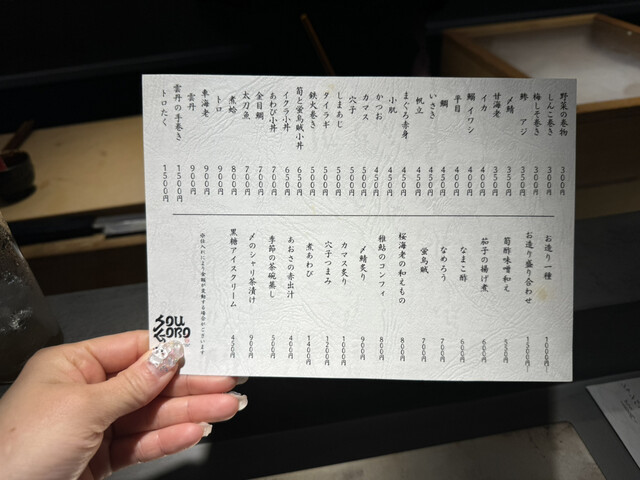 野菜の巻物 300円
しんこ巻き 300円
梅しそ巻き 300円
鯵 アジ 350円
〆鯖 350円
甘海老 350円
イカ 400円
鰯 イワシ 400円
平目 400円
鯛 450円
いさき 450円
帆立 450円
まぐろ赤身 450円
小肌 450円
かつお 450円
カマス 500円
穴子 500円
しまあじ 500円
タイラギ 500円
鉄火巻き 500円
筍と蛍烏賊小丼 650円
イクラ小丼 650円
あわび小丼 700円
金目鯛 700円
太刀魚 700円
煮蛤 800円
トロ 900円
車海老 900円
雲丹 900円
雲丹の手巻き 1500円
トロたく 1500円
お造り一種 1000円
お造り盛り合わせ 1500円
筍酢味噌和え 550円
茄子の揚げ煮 600円
なまこ酢 600円
なめろう 700円
蛍烏賊 700円
桜海老の和えもの 800円
稚鮎のコンフィ 800円
〆鯖炙り 900円
カマス炙り 1000円
穴子つまみ 1200円
煮あわび 1400円
あおさの赤出汁 400円
季節の茶碗蒸し 500円
〆のシャリ茶漬け 900円
黒糖アイスクリーム 450円
※仕入れにより金額が変動する場合がございます
SOU
KORO